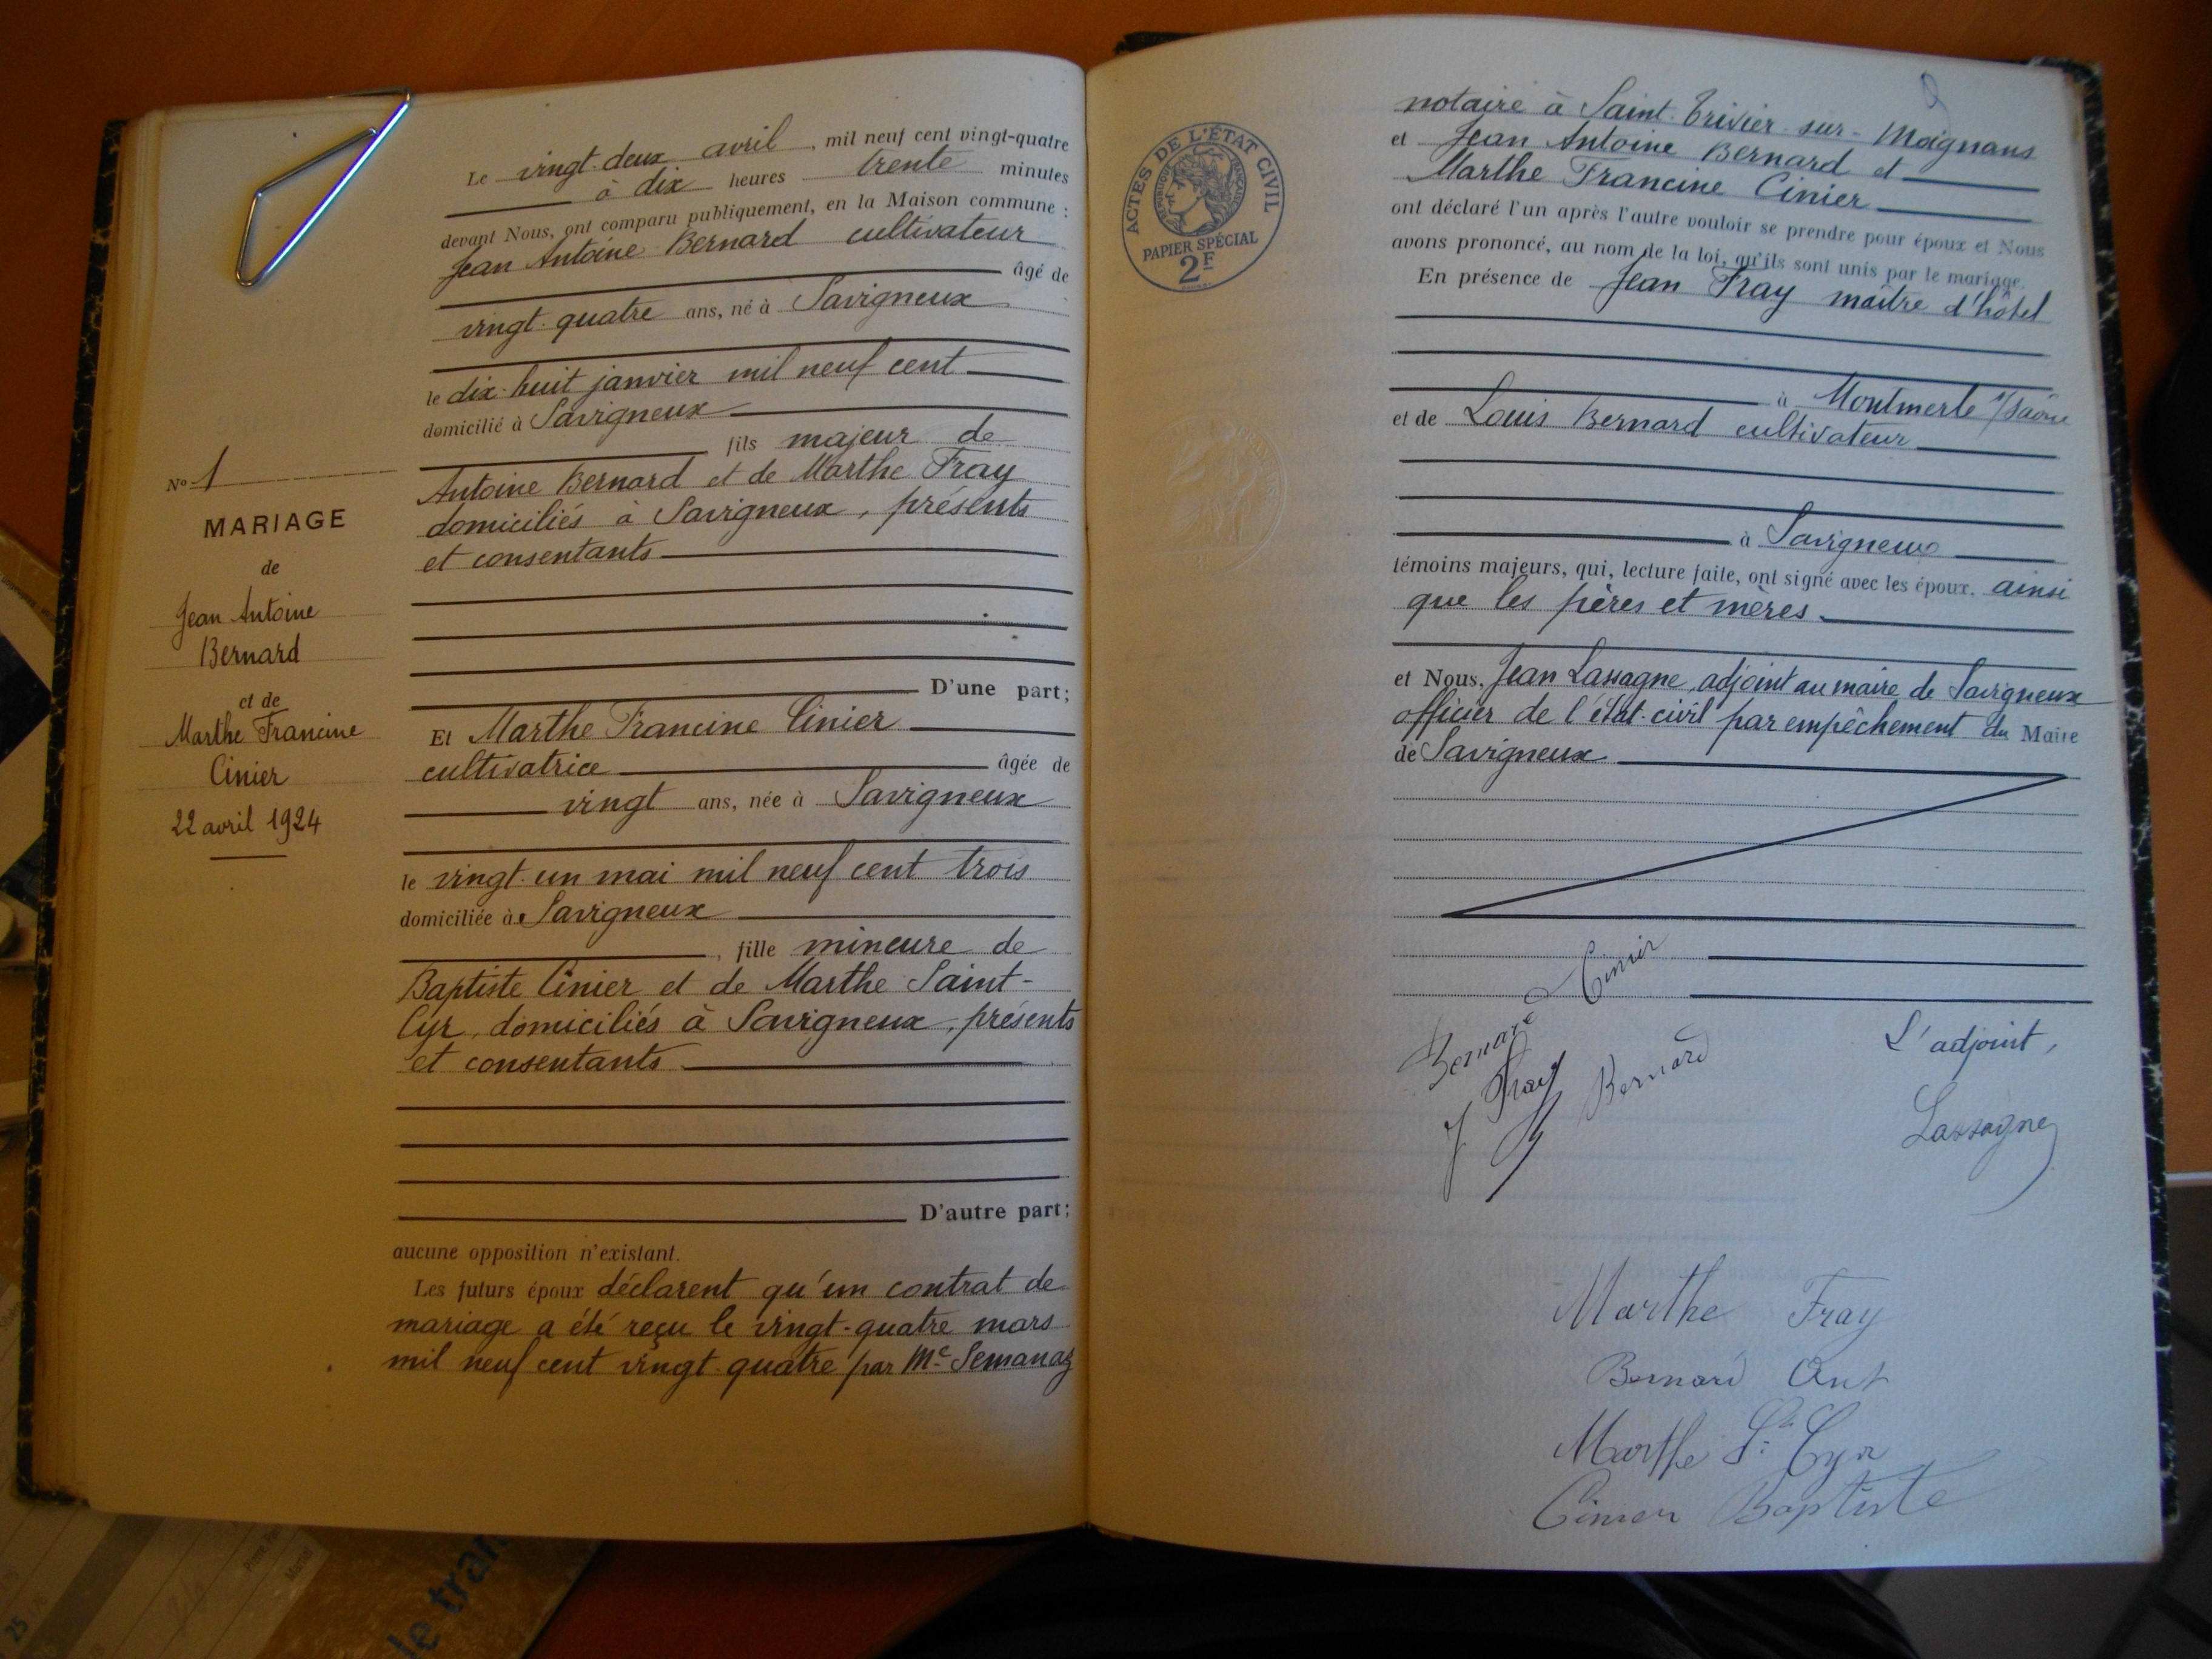 N° 1
MARIAGE
de
Jean Antoine
Bernard
et de
Marthe Francine
Cinier
22 avril 1924
Le vingt-deux avril, mil neuf cent vingt-quatre
à dix heures trente minutes
devant Nous, ont comparu publiquement, en la Maison commune :
Jean Antoine Bernard cultivateur
âgé de
vingt-quatre ans, né à Savigneux
le dix-huit janvier mil neuf cent
domicilié à Savigneux
fils majeur de
Antoine Bernard et de Marthe Fray
domiciliés à Savigneux, présents
et consentants
D'une part;
Et Marthe Francine Cinier
cultivatrice âgée de
vingt ans, née à Savigneux
le vingt-un mai mil neuf cent trois
domiciliée à Savigneux
, fille mineure de
Baptiste Cinier et de Marthe Saint-
Cyr, domiciliés à Savigneux, présents
et consentants
D'autre part;
aucune opposition n'existant.
Les futurs époux déclarent qu'un contrat de
mariage a été reçu le vingt-quatre mars
mil neuf cent vingt-quatre par Me Semanaz
ACTES DE L'ÉTAT CIVIL
RÉPUBLIQUE FRANÇAISE
PAPIER SPÉCIAL
2F
notaire à Saint-Trivier-sur-Moignans
et Jean Antoine Bernard et
Marthe Francine Cinier
ont déclaré l'un après l'autre vouloir se prendre pour époux et Nous
avons prononcé, au nom de la loi, qu'ils sont unis par le mariage.
En présence de Jean Fray maître d'hôtel
à Montmerle s/Saône
et de Louis Bernard cultivateur
à Savigneux
témoins majeurs, qui, lecture faite, ont signé avec les époux, ainsi
que les pères et mères
et Nous, Jean Lassagne, adjoint au maire de Savigneux
officier de l'état-civil par empêchement du Maire
de Savigneux
Cinier
Bernard
J Fray
Bernard
L'adjoint,
Lassagne
Marthe Fray
Bernard Ant
Marthe St Cyr
Cinier Baptiste
le tran
25